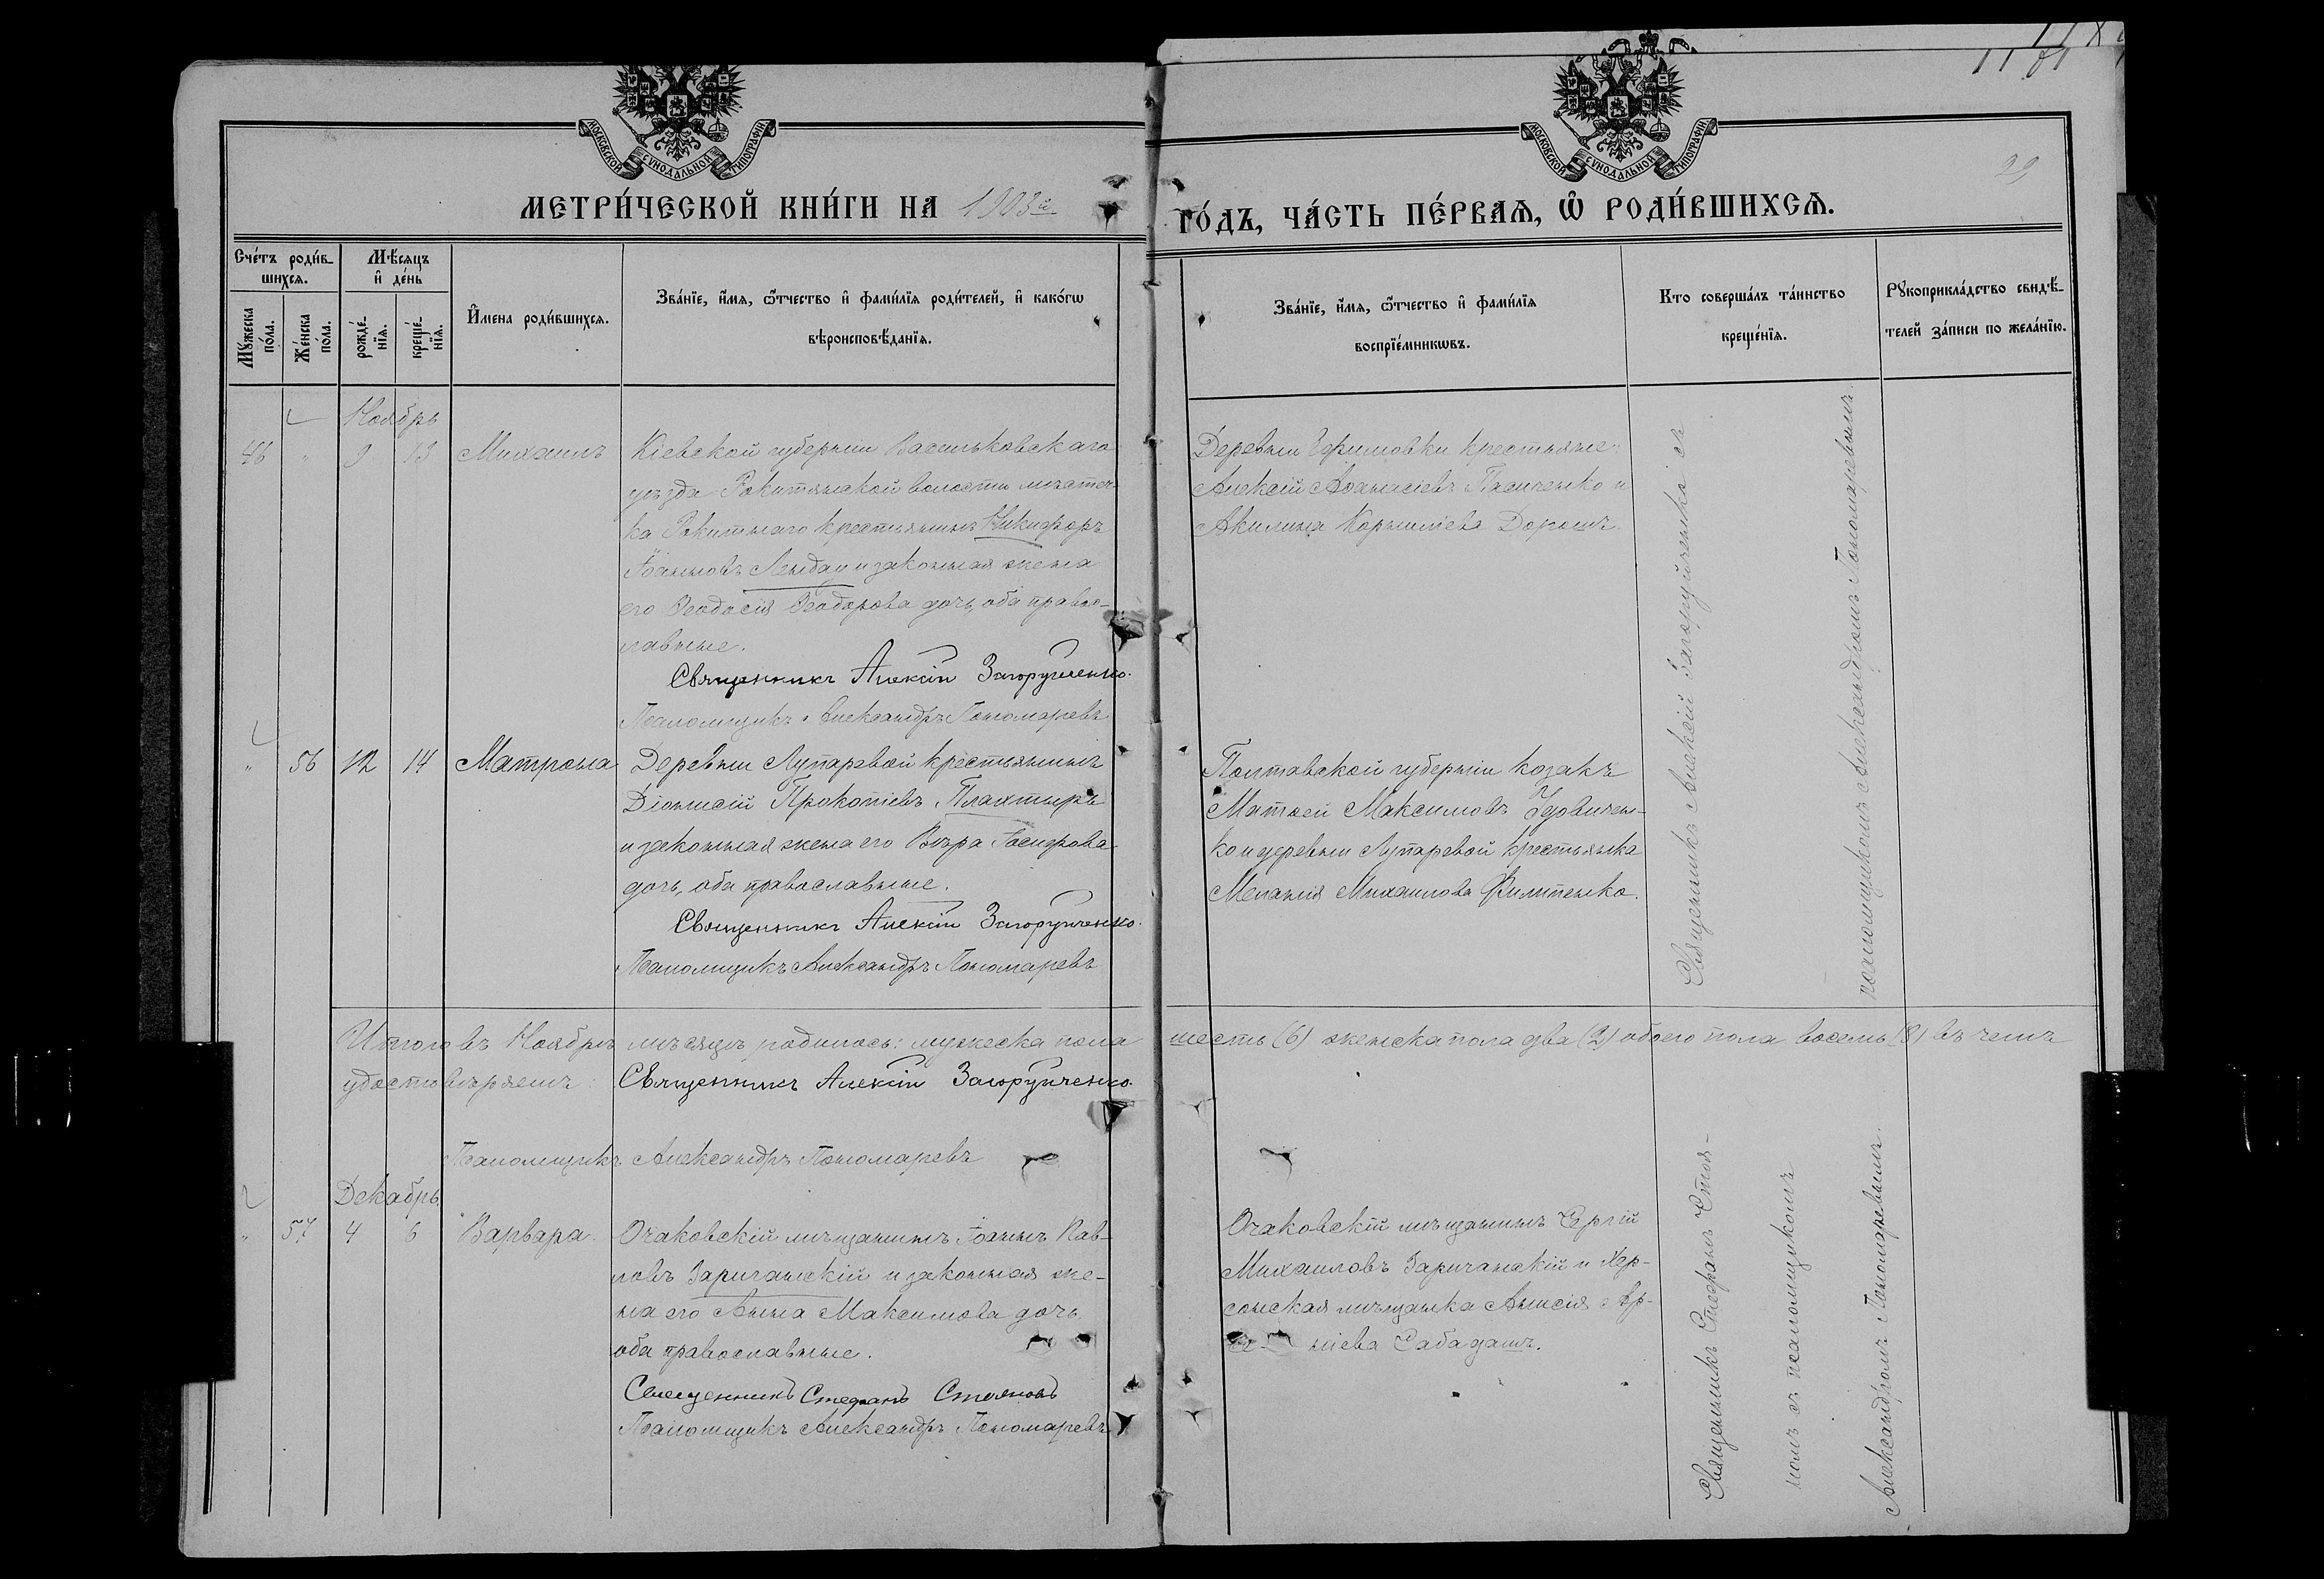 МОСКОВСКОЙ СѴНОДАЛЬНОЙ ТИПОГРАФІИ
МОСКОВСКОЙ СѴНОДАЛЬНОЙ ТИПОГРАФІИ
29
МЕТРИ́ЧЕСКОЙ КНИ́ГИ НА 1903й
ГО́ДЪ, ЧА́СТЬ ПЕ́РВАѦ, Ѡ҆ РОДИ́ВШИХСѦ.
Сче́тъ роди́в-
шихсѧ.
Мꙋ́жеска по́ла.
Же́нска по́ла.
Мѣ́сѧцъ
и҆ де́нь
рожде́-
нїѧ.
креще́-
нїѧ.
И҆мена роди́вшихсѧ.
Зва́нїе, и҆́мѧ, ѻ҆́тчество и҆ фами́лїѧ роди́телей, и҆ како́гѡ
вѣроисповѣ́данїѧ.
Зва́нїе, и҆́мѧ, ѻ҆́тчество и҆ фами́лїѧ
воспрїе́мникѡвъ.
Кто соверша́лъ та́инство
креще́нїѧ.
Рꙋкоприкла́дство свидѣ́-
телей за́писи по жела́нїю.
Ноябрь
46 " 9 13 Михаилъ
Кіевской губерніи Васильковскаго
уѣзда Рокитянской волости мѣстеч-
ка Рокитнаго крестьянинъ Никифоръ
Іоанновъ Лендау и законная жена
его Ѳеодосія Ѳеодорова дочь, оба правос-
лавные.
Священникъ Алексій Загоруйченко.
Псаломщикъ Александръ Пономаревъ
Деревни Ефимовки крестьяне:
Алексій Аѳанасіевъ Пасиченко и
Акилина Корниліева Дорошъ.
Священникъ Алексій Загоруйченко съ
псаломщикомъ Александромъ Пономаревымъ.
" 56 12 14 Матрона
Деревни Лупаревой крестьянинъ
Діонисій Прокопіевъ Плахтыръ
и законная жена его Вѣра Іосифова
дочь, оба православные.
Священникъ Алексій Загоруйченко.
Псаломщикъ Александръ Пономаревъ
Полтавской губерніи козакъ
Матѳей Максимовъ Удовичен-
ко и деревни Лупаревой крестьянка
Меланія Михаилова Филипенко.
Итого въ Ноябрѣ мѣсяцѣ родилось: мужеска пола шесть (6) женска пола два (2) обоего пола восемь (8) въ чемъ
удостовѣряемъ: Священникъ Алексій Загоруйченко.
Псаломщикъ Александръ Пономаревъ
Декабрь
" 57 4 6 Варвара.
Очаковскій мѣщанинъ Іоаннъ Пав-
ловъ Заричанскій и законная же-
на его Анна Максимова дочь,
оба православные.
Священникъ Стефанъ Стояновъ
Псаломщикъ Александръ Пономаревъ
Очаковскій мѣщанинъ Сергій
Михаиловъ Заричанскій и Хер-
сонская мѣщанка Анисія Ар-
ніева Сабадашъ.
Священникъ Стефанъ Стоя-
номъ съ псаломщикомъ
Александромъ Пономаревымъ.